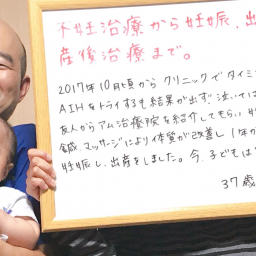 不妊治療から妊娠、出
産後治療まで。
2017年10月頃から クリニックでタイミ
AIHをトライするも結果が出ず、泣いては
友人からアム治療院を紹介してもらい、
鍼、マッサージにより体質が改善し 1年か
妊娠し、出産をしました。今、子どもは
37歳